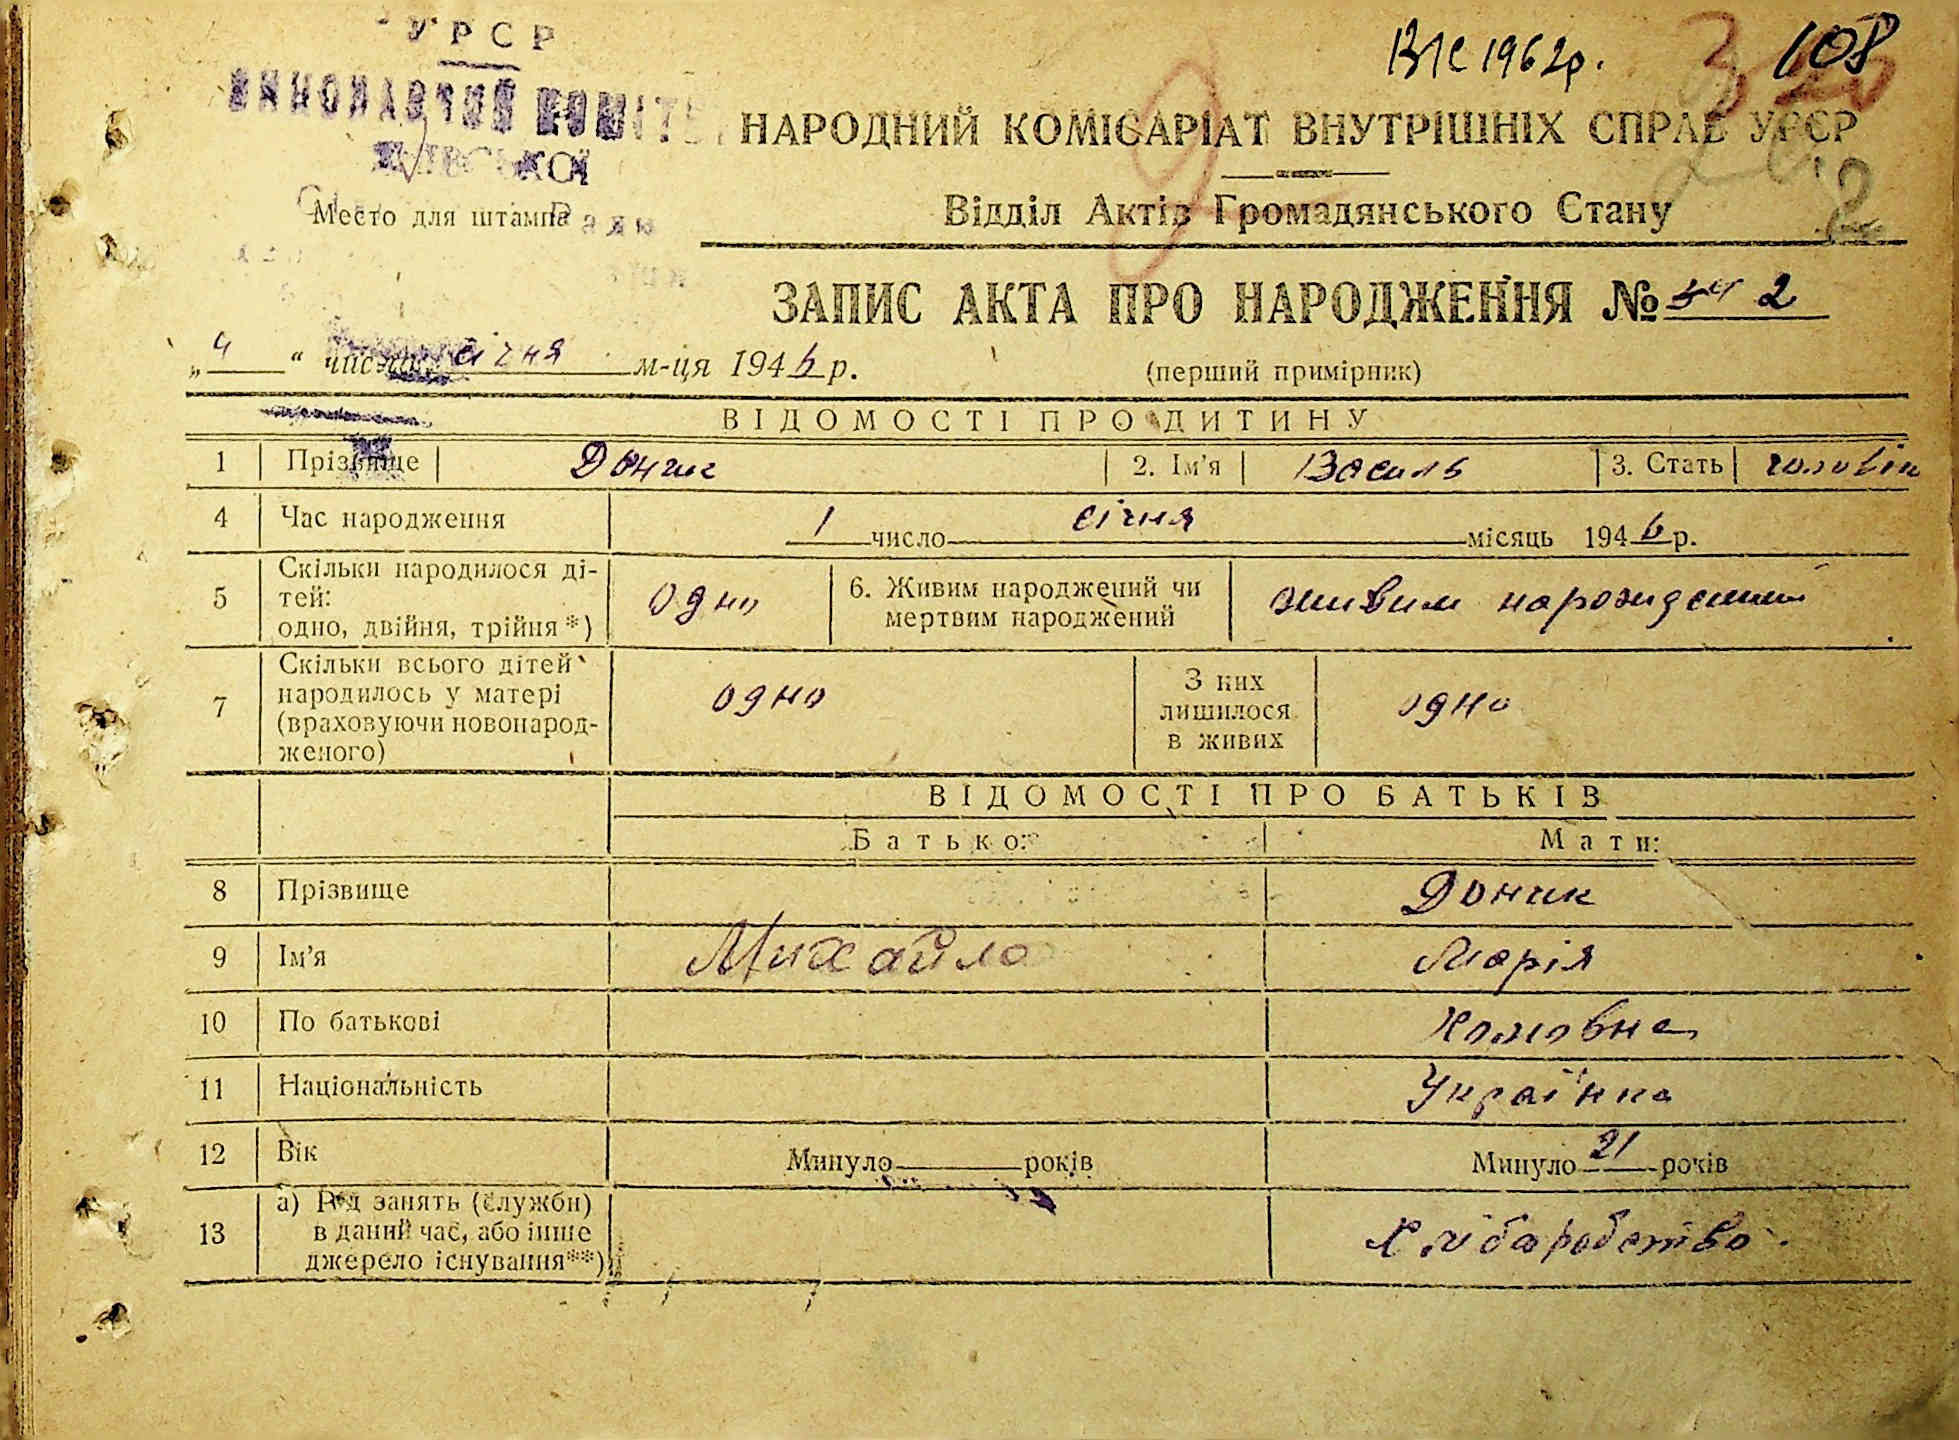 УРСР
ВИКОНАВЧИЙ КОМІТЕТ
Место для штампа
ВЛС 1962р.
108
НАРОДНИЙ КОМІСАРІАТ ВНУТРІШНІХ СПРАВ УРСР
Відділ Актів Громадянського Стану
2
ЗАПИС АКТА ПРО НАРОДЖЕННЯ № 2
„4“ числа січня м-ця 1946 р.
(перший примірник)
ВІДОМОСТІ ПРО ДИТИНУ
1 Прізвище Доник 2. Ім’я Василь 3. Стать чоловіч
4 Час народження 1 число січня місяць 1946 р.
5 Скільки народилося ді-
тей:
одно, двійня, трійня*) одно 6. Живим народжений чи
мертвим народжений живим народжений
7 Скільки всього дітей
народилось у матері
(враховуючи новонарод-
женого) одно З них
лишилося
в живих одно
ВІДОМОСТІ ПРО БАТЬКІВ
Батько: Мати:
8 Прізвище Доник
9 Ім’я Михайло Марія
10 По батькові Хомовна
11 Національність Українка
12 Вік Минуло років Минуло 21 років
13 а) Рід занять (служби)
в даний час, або інше
джерело існування**) Хліборобство.